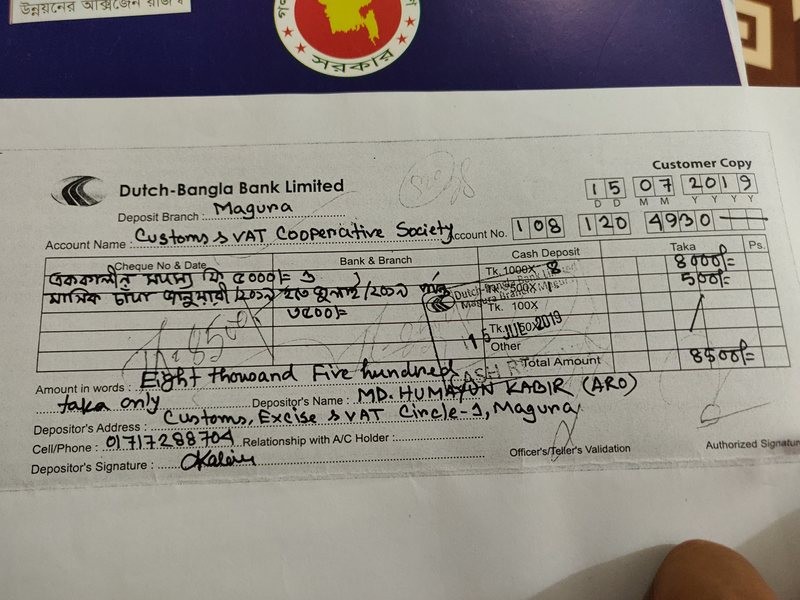 উন্নয়নের অক্সিজেন রাজস্ব
সরকার
Customer Copy
Dutch-Bangla Bank Limited
15 07 2019
D D M M Y Y Y Y
Deposit Branch : Magura
Account Name : Customs & VAT Cooperative Society Account No. 108 120 4930
Cheque No & Date Bank & Branch Cash Deposit Taka Ps.
এককালীন সদস্য ফি ৫০০০/= ও Tk. 1000X 8 8000/=
মাসিক চাঁদা জানুয়ারী/২০১৯ হতে জুলাই/২০১৯ পর্যন্ত Tk. 500X 1 500/=
৩৫০০/= Tk. 100X
Dutch-Bangla Bank Limited
Magura Branch, Magura
15 JUL 2019
Tk. 50X
Other
Total Amount 8500/=
Tk 8500/=
Amount in words : Eight thousand Five hundred
taka only Depositor's Name : MD. HUMAYUN KABIR (ARO)
Depositor's Address : Customs, Excise & VAT Circle-1, Magura
Cell/Phone : 01717288704 Relationship with A/C Holder :
Depositor's Signature : Kabir
Officer's/Teller's Validation
Authorized Signatur